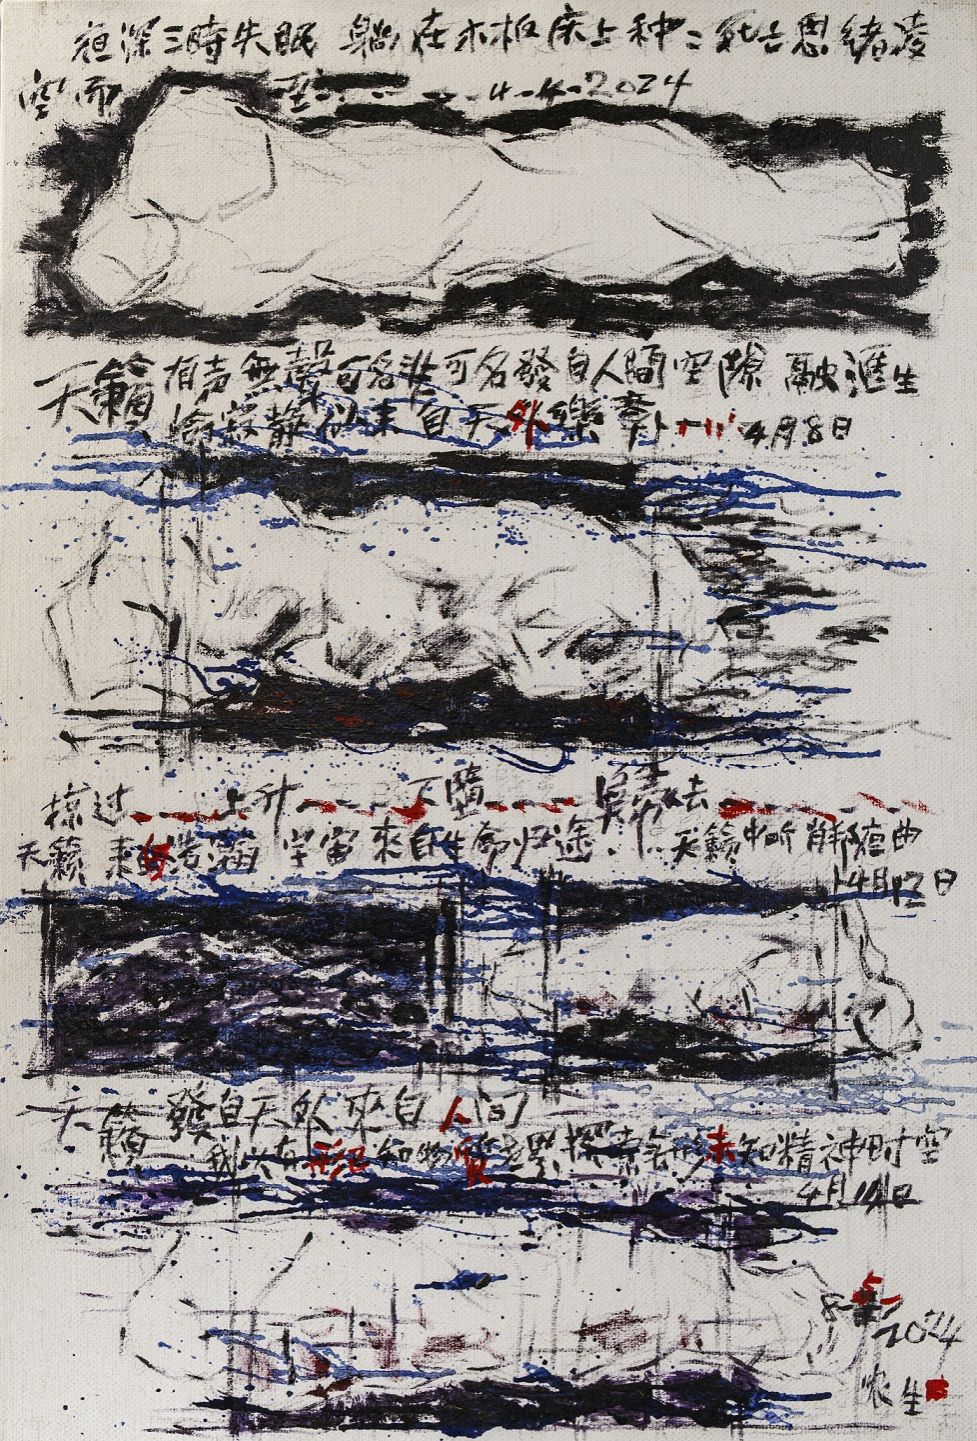 夜深三時失眠 躺在木板床上种種死亡思緒凌
空而 至 4-4-2024
天籟有声無聲可名非可名發自人間空隙融滙生
命寂静似来自天外樂奏 4月8日
掠过 上升 下墮 歸去
天籟来自浩瀚宇宙來自生命归途 天籟中聆夜曲
4月12日
天籟發自天外來自人间
我以有形已知物質世界探索無形未知精神时空
4月
8-5-2024
农生